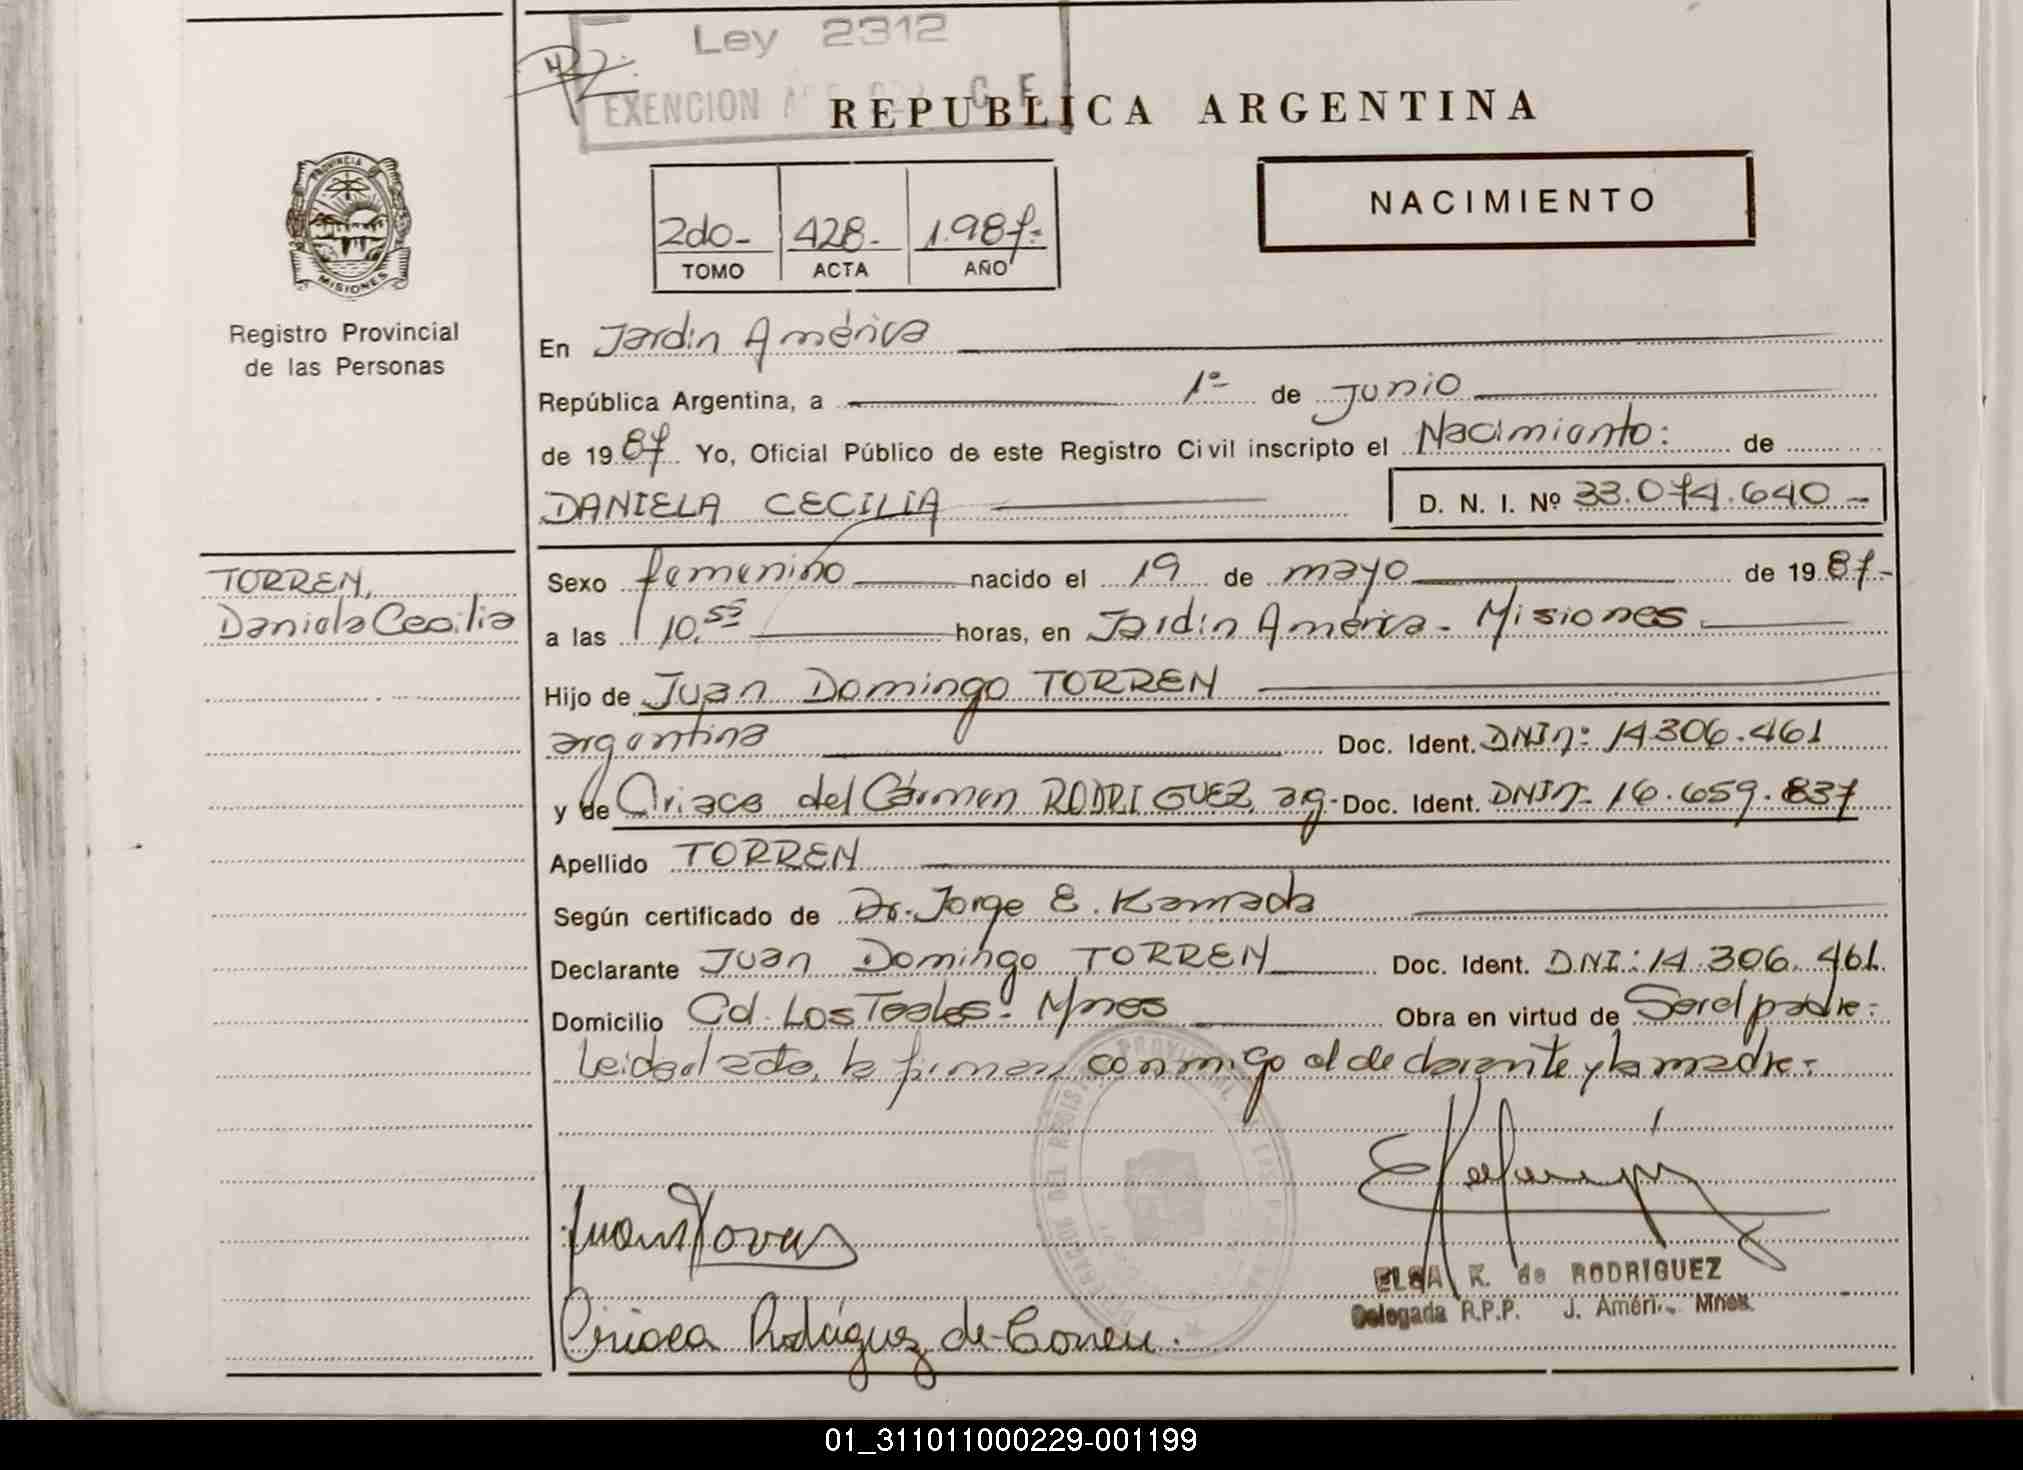 Ley 2312
EXENCION
REPUBLICA ARGENTINA
NACIMIENTO
2do- 428- 1.987-
TOMO ACTA AÑO
PROVINCIA
MISIONES
Registro Provincial
de las Personas
En Jardin América
República Argentina, a 1º de Junio
de 1987 Yo, Oficial Público de este Registro Civil inscripto el Nacimiento: de
DANIELA CECILIA D. N. I. Nº 33.074.640-
TORREN,
Daniela Cecilia
Sexo femenino nacido el 19 de mayo de 1987-
a las 10,55 horas, en Jardin América - Misiones
Hijo de Juan Domingo TORREN
argentina Doc. Ident. DNIn: 14306.461
y de Ciriaca del Cármen RODRIGUEZ, arg- Doc. Ident. DNIn- 16.659.837
Apellido TORREN
Según certificado de Dr. Jorge E. Kamada
Declarante Juan Domingo TORREN Doc. Ident. DNI: 14.306.461
Domicilio Cd. Los Teales - Mnes Obra en virtud de Ser el padre-
Leida el acta, la firman conmigo el declarante y la madre-
Ciriaca Rodríguez de Torren.
ELSA K. de RODRIGUEZ
Delegada R.P.P. J. Améri. Mnes.
01_311011000229-001199